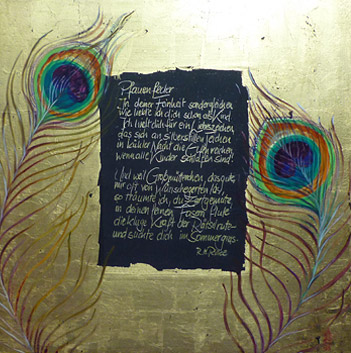 Pfauenfeder
In deiner Feinheit sondergleichen
wie liebte ich dich schon als Kind
Ich hielt dich für ein Liebeszeichen
das sich an silberstillen Teichen
in kühler Nacht die Elfen reichen
wenn alle Kinder schlafen sind!
Und weil Großmütterchen, das gute
mir oft von Wünschegerten las,
so träumte ich, du Zartgemute
in deinen feinen Fasern flute
die kluge Kraft der Rätselrute-
und suchte dich im Sommergras.
R.M. Rilke